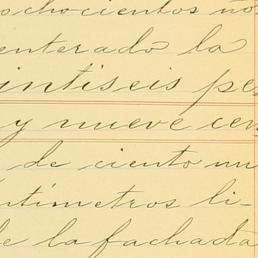 ochocientos no
enterado la
intiseis pe
y nueve cen
de ciento un
ntímetros li-
de la fachada